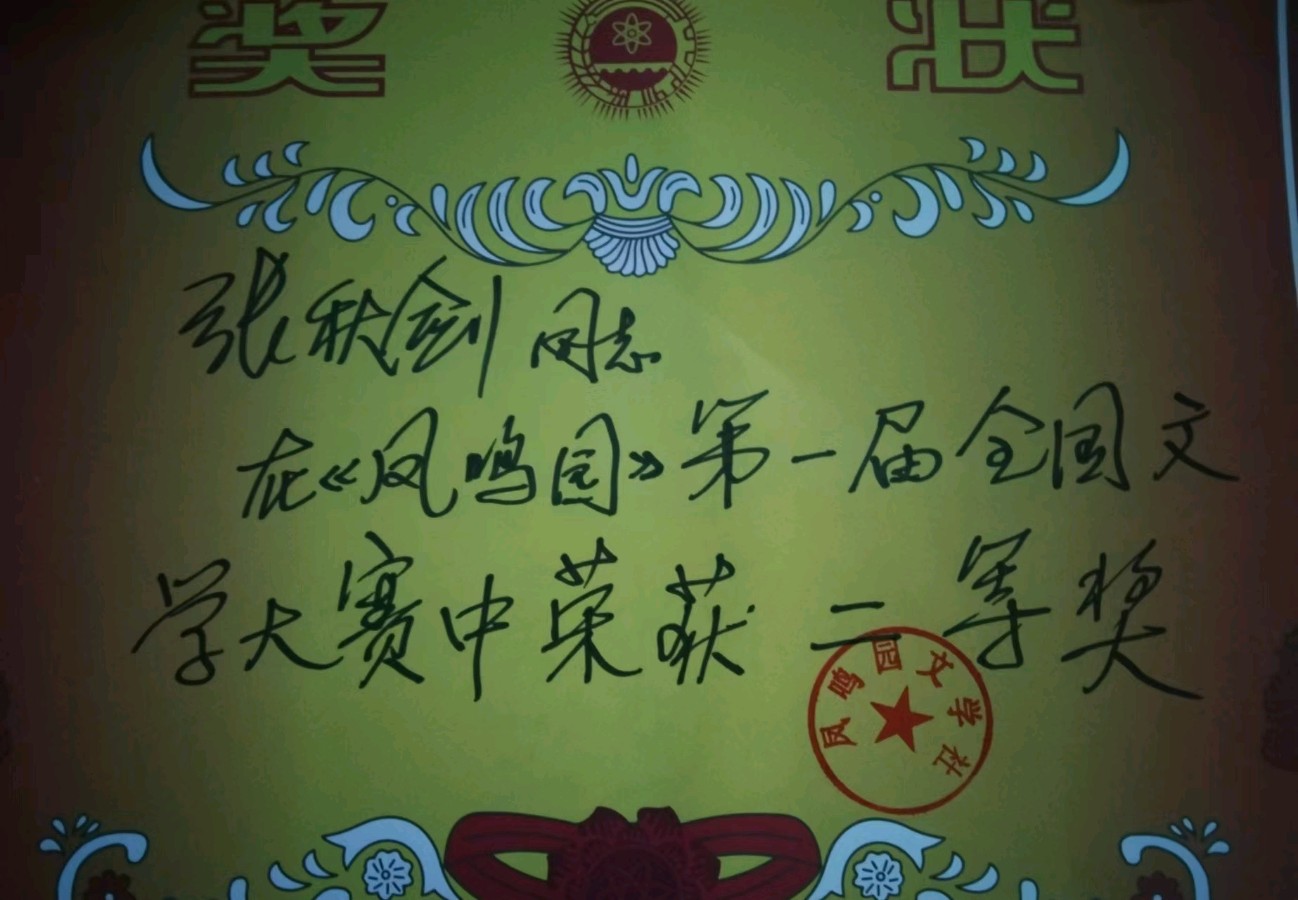 奖状
张秋剑同志
在《凤鸣园》第一届全国文
学大赛中荣获二等奖
凤鸣园文学社